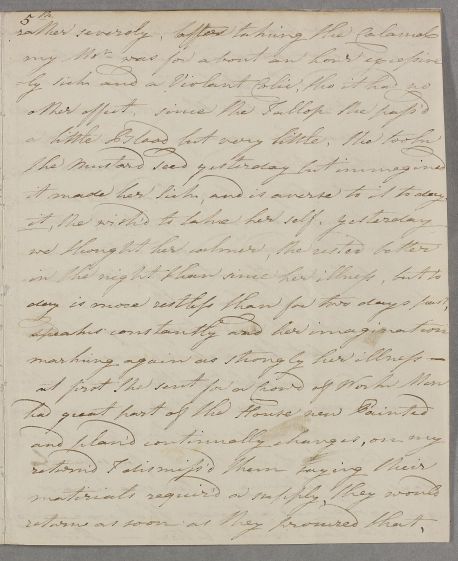 5th
rather severely. after taking the Calomel
my Mor was for about an hour excessive
ly sick and a Violant Colic, tho it had no
other effect. since the Jallop she pass'd
a little Blood but very little, she took
the Mustard seed yesterday but immagined
it made her sick, and is averse to it to day
it, she wish'd to take her self. yesterday
we thought her calmer, she rested better
in the night than since her illness, but to
day is more restless than for two days past,
speaks constantly and her imagination
marking again as strongly her illness —
at first she sent for a hord of Work Men
had great part of the House new Painted
and pland continually changes, on my
return I dismiss'd them saying their
materials requir'd a supply, they would
return as soon as they procured that,